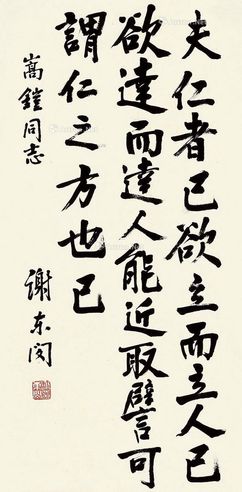 夫仁者己欲立而立人己
欲達而達人能近取譬可
謂仁之方也已
嵩鎧同志
谢东闵